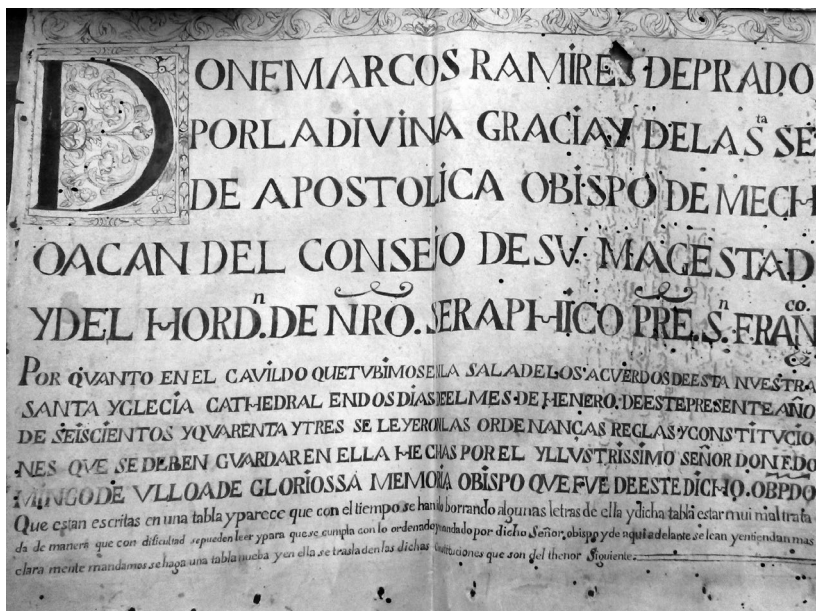 DON FMARCOS RAMIRES DEPRADO
PORLADIVINA GRACIAY DELAS.ta SE
DE APOSTOLICA OBISPO DE MECH
OACAN DEL CONSEJO DE SV. MAGESTAD
YDEL HORD.n DE NRO. SERAPHICO PRE. S.n FRAN co.
POR QVANTO EN EL CAVILDO QUETVBIMOS EN LA SALA DE LOS ACVERDOS DE ESTA NVESTRA
SANTA YGLECIA CATHEDRAL EN DOS DIAS DEEL MES DE HENERO. DE ESTE PRESENTE AÑO
DE SEISCIENTOS YQVARENTA YTRES SE LEYERON LAS ORDENANÇAS REGLAS Y CONSTITVCIO
NES QVE SE DEBEN GVARDAR EN ELLA HECHAS POR EL YLLVSTRISSIMO SEÑOR DON FDO
MINGO DE VLLOA DE GLORIOSSA MEMORIA OBISPO QVE FVE DE ESTE DICHO. OBPDO
Que estan escritas en una tabla y parece que con el tiempo se han ido borrando algunas letras de ella y dicha tabla estar mui mal trata
da de manera que con dificultad se pueden leer y para que se cumpla con lo ordenado y mandado por dicho Señor obispo y de aqui adelante se lean y entiendan mas
clara mente mandamos se haga una tabla nueba y en ella se trasladen las dichas constituciones que son del thenor Siguiente.